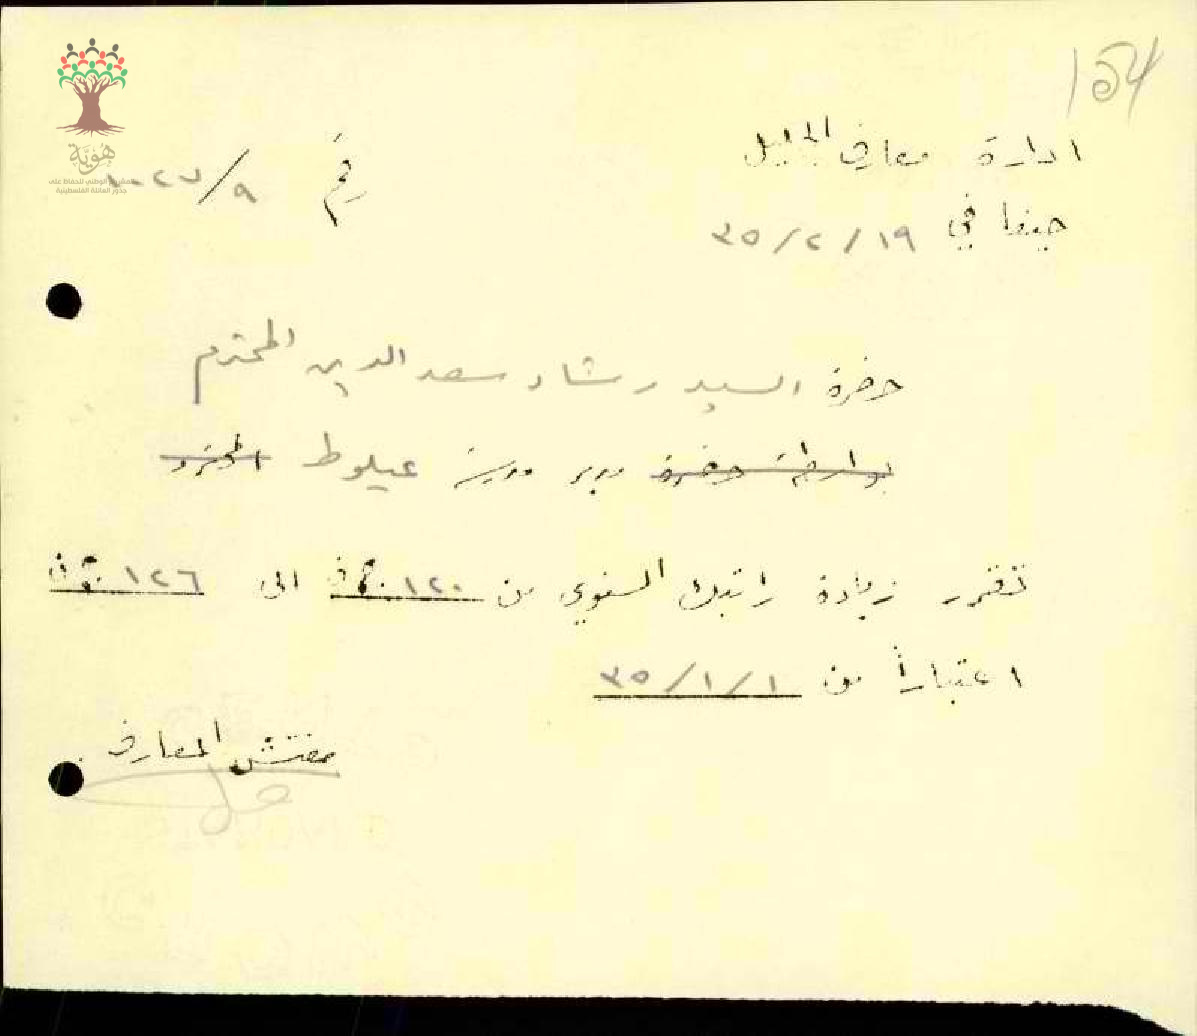 154
ادارة معارف الجليل
رقم ٩/١٠٢٧
حيفا في ١٩/٢/٣٥
هُوِيَّة
المشروع الوطني للحفاظ على
جذور العائلة الفلسطينية
حضرة السيد رشاد سعد الدين المحترم
بواسطة حضرة مدير مدرسة عيلوط المحترم
تقرر زيادة راتبك السنوي من ١٢٠ الى ١٢٦
اعتباراً من ١/١/٣٥
مفتش المعارف